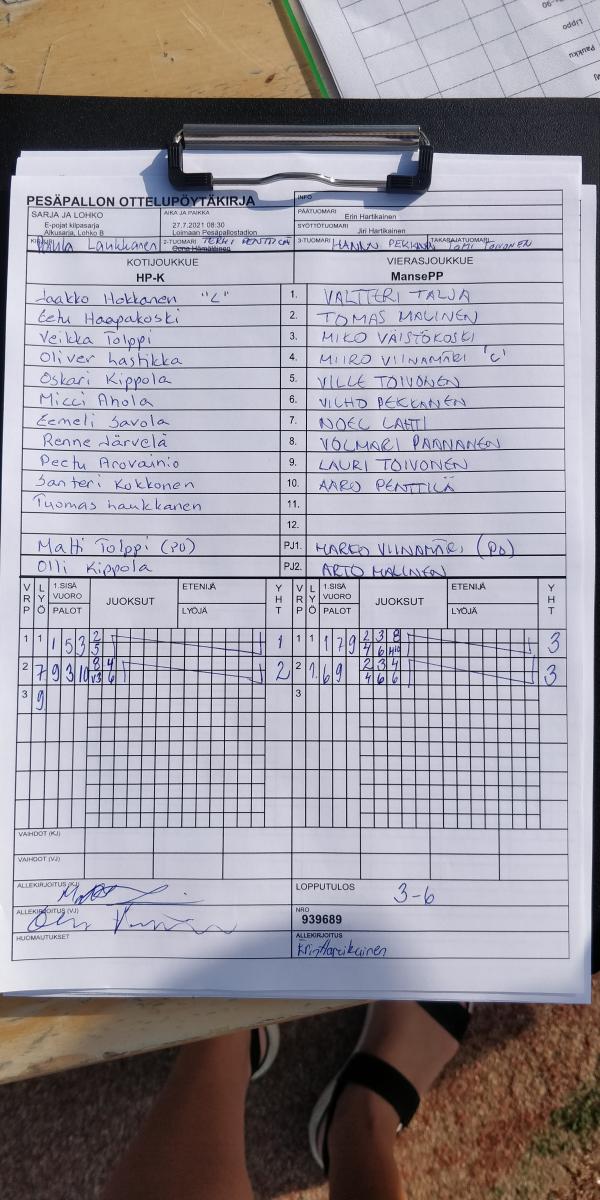 PESÄPALLON OTTELUPÖYTÄKIRJA
INFO
SARJA JA LOHKO
E-pojat kilpasarja
Alkusarja, Lohko B
AIKA JA PAIKKA
27.7.2021 08:30
Loimaan Pesäpallostadion
PÄÄTUOMARI
Erin Hartikainen
SYÖTTÖTUOMARI
Jiri Hartikainen
KIRJURI Paula Laukkanen
2-TUOMARI TERHI PENTTILÄ
3-TUOMARI HANNU PEKKANEN
TAKARAJATUOMARI TOMI TOIVONEN
KOTIJOUKKUE
HP-K
VIERASJOUKKUE
MansePP
Jaakko Hokkanen "C" 1. VALTTERI TALJA
Eetu Haapakoski 2. TOMAS MALINEN
Veikka Tolppi 3. MIKO VÄISTÖKOSKI
Oliver Lastikka 4. MIIRO VIINAMÄKI 'C'
Oskari Kippola 5. VILLE TOIVONEN
Micci Ahola 6. VILHO PEKKANEN
Eemeli Savola 7. NOEL LAHTI
Renne Järvelä 8. VOLMARI PAANANEN
Peetu Arovainio 9. LAURI TOIVONEN
Santeri Kokkonen 10. AARO PENTTILÄ
Tuomas Laukkanen 11.
12.
Matti Tolppi (PO) PJ1. MARKO VIINAMÄKI (PO)
Olli Kippola PJ2. ARTO MALINEN
VRP LYÖ 1.SISÄ VUORO PALOT JUOKSUT ETENIJÄ LYÖJÄ YHT VRP LYÖ 1.SISÄ VUORO PALOT JUOKSUT ETENIJÄ LYÖJÄ YHT
1 1 1 5 3 2 1 1 1 1 7 9 2 3 8 3
5 4 6
2 7 9 3 10 8 4 2 2 6 9 2 3 4 3
6 4 6 6
3 9 3
VAIHDOT (KJ)
VAIHDOT (VJ)
ALLEKIRJOITUS (KJ)
LOPPUTULOS 3-6
ALLEKIRJOITUS (VJ)
NRO
939689
HUOMAUTUKSET
ALLEKIRJOITUS
Erin Hartikainen
Lippo
Paukku